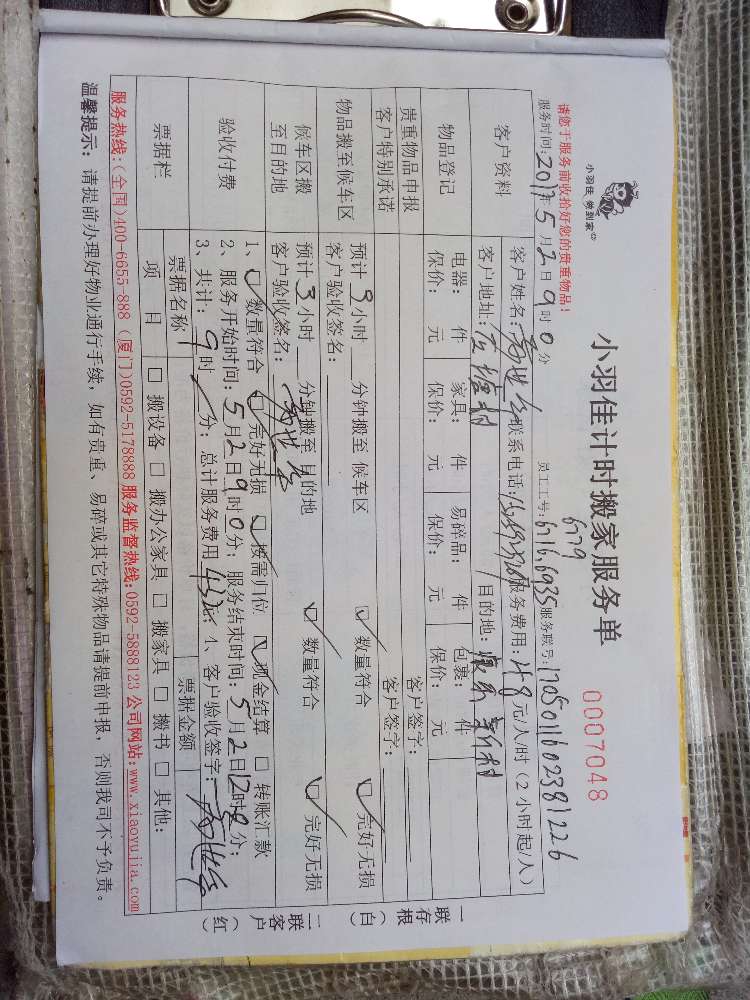 小羽佳 做到家
小羽佳计时搬家服务单
0007048
请您于服务前收拾好您的贵重物品!
6779
服务时间:2017年5月2日9时0分 员工工号:6716,6935 服务联号:170501160238 1226
客户资料
客户姓名: 联系电话: 服务费用:48元/人/时(2小时起/人)
客户地址: 目的地: 新村
物品登记
电器: 件 家具: 件 易碎品: 件 包裹: 件
保价: 元 保价: 元 保价: 元 保价: 元
贵重物品申报 客户签字:
客户特别承诺 客户签字:
物品搬至候车区
预计 3 小时 分钟搬至 候车区 数量符合 完好无损
客户验收签名:
候车区搬至目的地
预计 3 小时 分钟搬至 目的地 数量符合 完好无损
客户验收签名:
验收付费
1、 数量符合 完好无损 按需归位 现金结算 转账汇款
2、服务开始时间:5月2日9时0分;服务结束时间:5月2日12时0分;
3、共计:9时 分;总计服务费用432元 4、客户验收签字:
票据栏
票据名称 票据金额
项目 搬设备 搬办公家具 搬家具 搬书 其他:
服务热线:(全国)400-6655-888 (厦门)0592-5178888 服务监督热线:0592-5888123 公司网站:www.xiaoyujia.com
温馨提示: 请提前办理好物业通行手续,如有贵重、易碎或其它特殊物品请提前申报,否则我司不予负责。
一联存根(白)
二联客户(红)